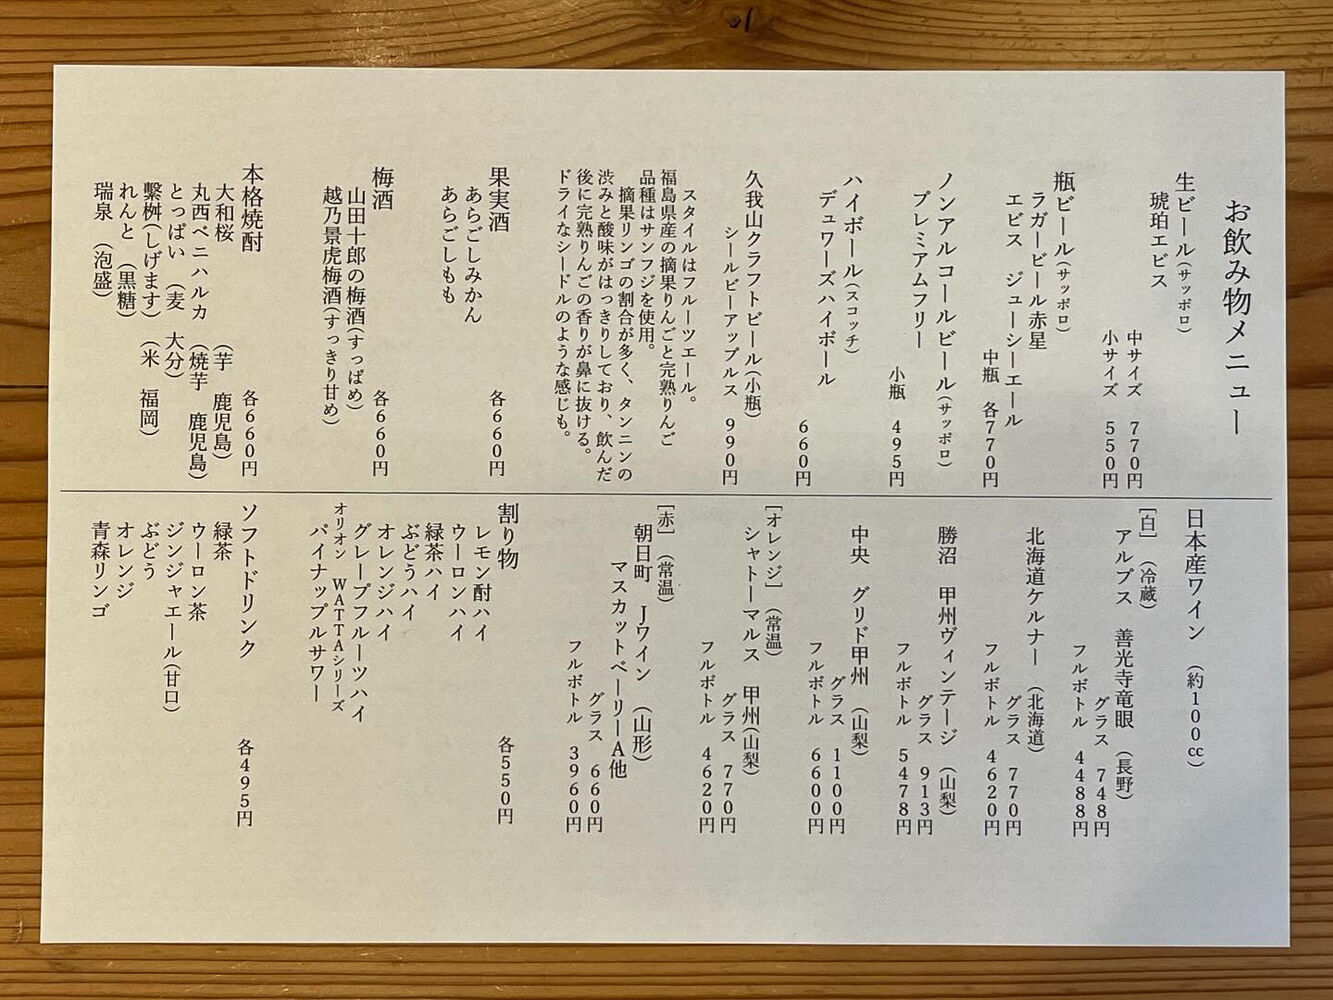 お飲み物メニュー
生ビール(サッポロ)
琥珀エビス
中サイズ 770円
小サイズ 550円
瓶ビール(サッポロ)
ラガービール赤星
エビス ジューシーエール
中瓶 各770円
ノンアルコールビール(サッポロ)
プレミアムフリー
小瓶 495円
ハイボール(スコッチ)
デュワーズハイボール
660円
久我山クラフトビール(小瓶)
シールビーアップルス 990円
スタイルはフルーツエール。
福島県産の摘果りんごと完熟りんご
品種はサンフジを使用。
摘果リンゴの割合が多く、タンニンの
渋みと酸味がはっきりしており、飲んだ
後に完熟りんごの香りが鼻に抜ける。
ドライなシードルのような感じも。
果実酒 各660円
あらごしみかん
あらごしもも
梅酒 各660円
山田十郎の梅酒(すっぱめ)
越乃景虎梅酒(すっきり甘め)
本格焼酎 各660円
大和桜 (芋 鹿児島)
丸西ベニハルカ (焼芋 鹿児島)
とっぱい (麦 大分)
繫桝(しげます) (米 福岡)
れんと (黒糖)
瑞泉 (泡盛)
日本産ワイン (約100cc)
[白] (冷蔵)
アルプス 善光寺竜眼 (長野)
グラス 748円
フルボトル 4488円
北海道ケルナー (北海道)
グラス 770円
フルボトル 4620円
勝沼 甲州ヴィンテージ (山梨)
グラス 913円
フルボトル 5478円
中央 グリド甲州 (山梨)
グラス 1100円
フルボトル 6600円
[オレンジ] (常温)
シャトーマルス 甲州(山梨)
グラス 770円
フルボトル 4620円
[赤] (常温)
朝日町 Jワイン (山形)
マスカットベーリーA他
グラス 660円
フルボトル 3960円
割り物 各550円
レモン酎ハイ
ウーロンハイ
緑茶ハイ
ぶどうハイ
オレンジハイ
グレープフルーツハイ
オリオン WATTAシリーズ
パイナップルサワー
ソフトドリンク 各495円
緑茶
ウーロン茶
ジンジャエール(甘口)
ぶどう
オレンジ
青森リンゴ